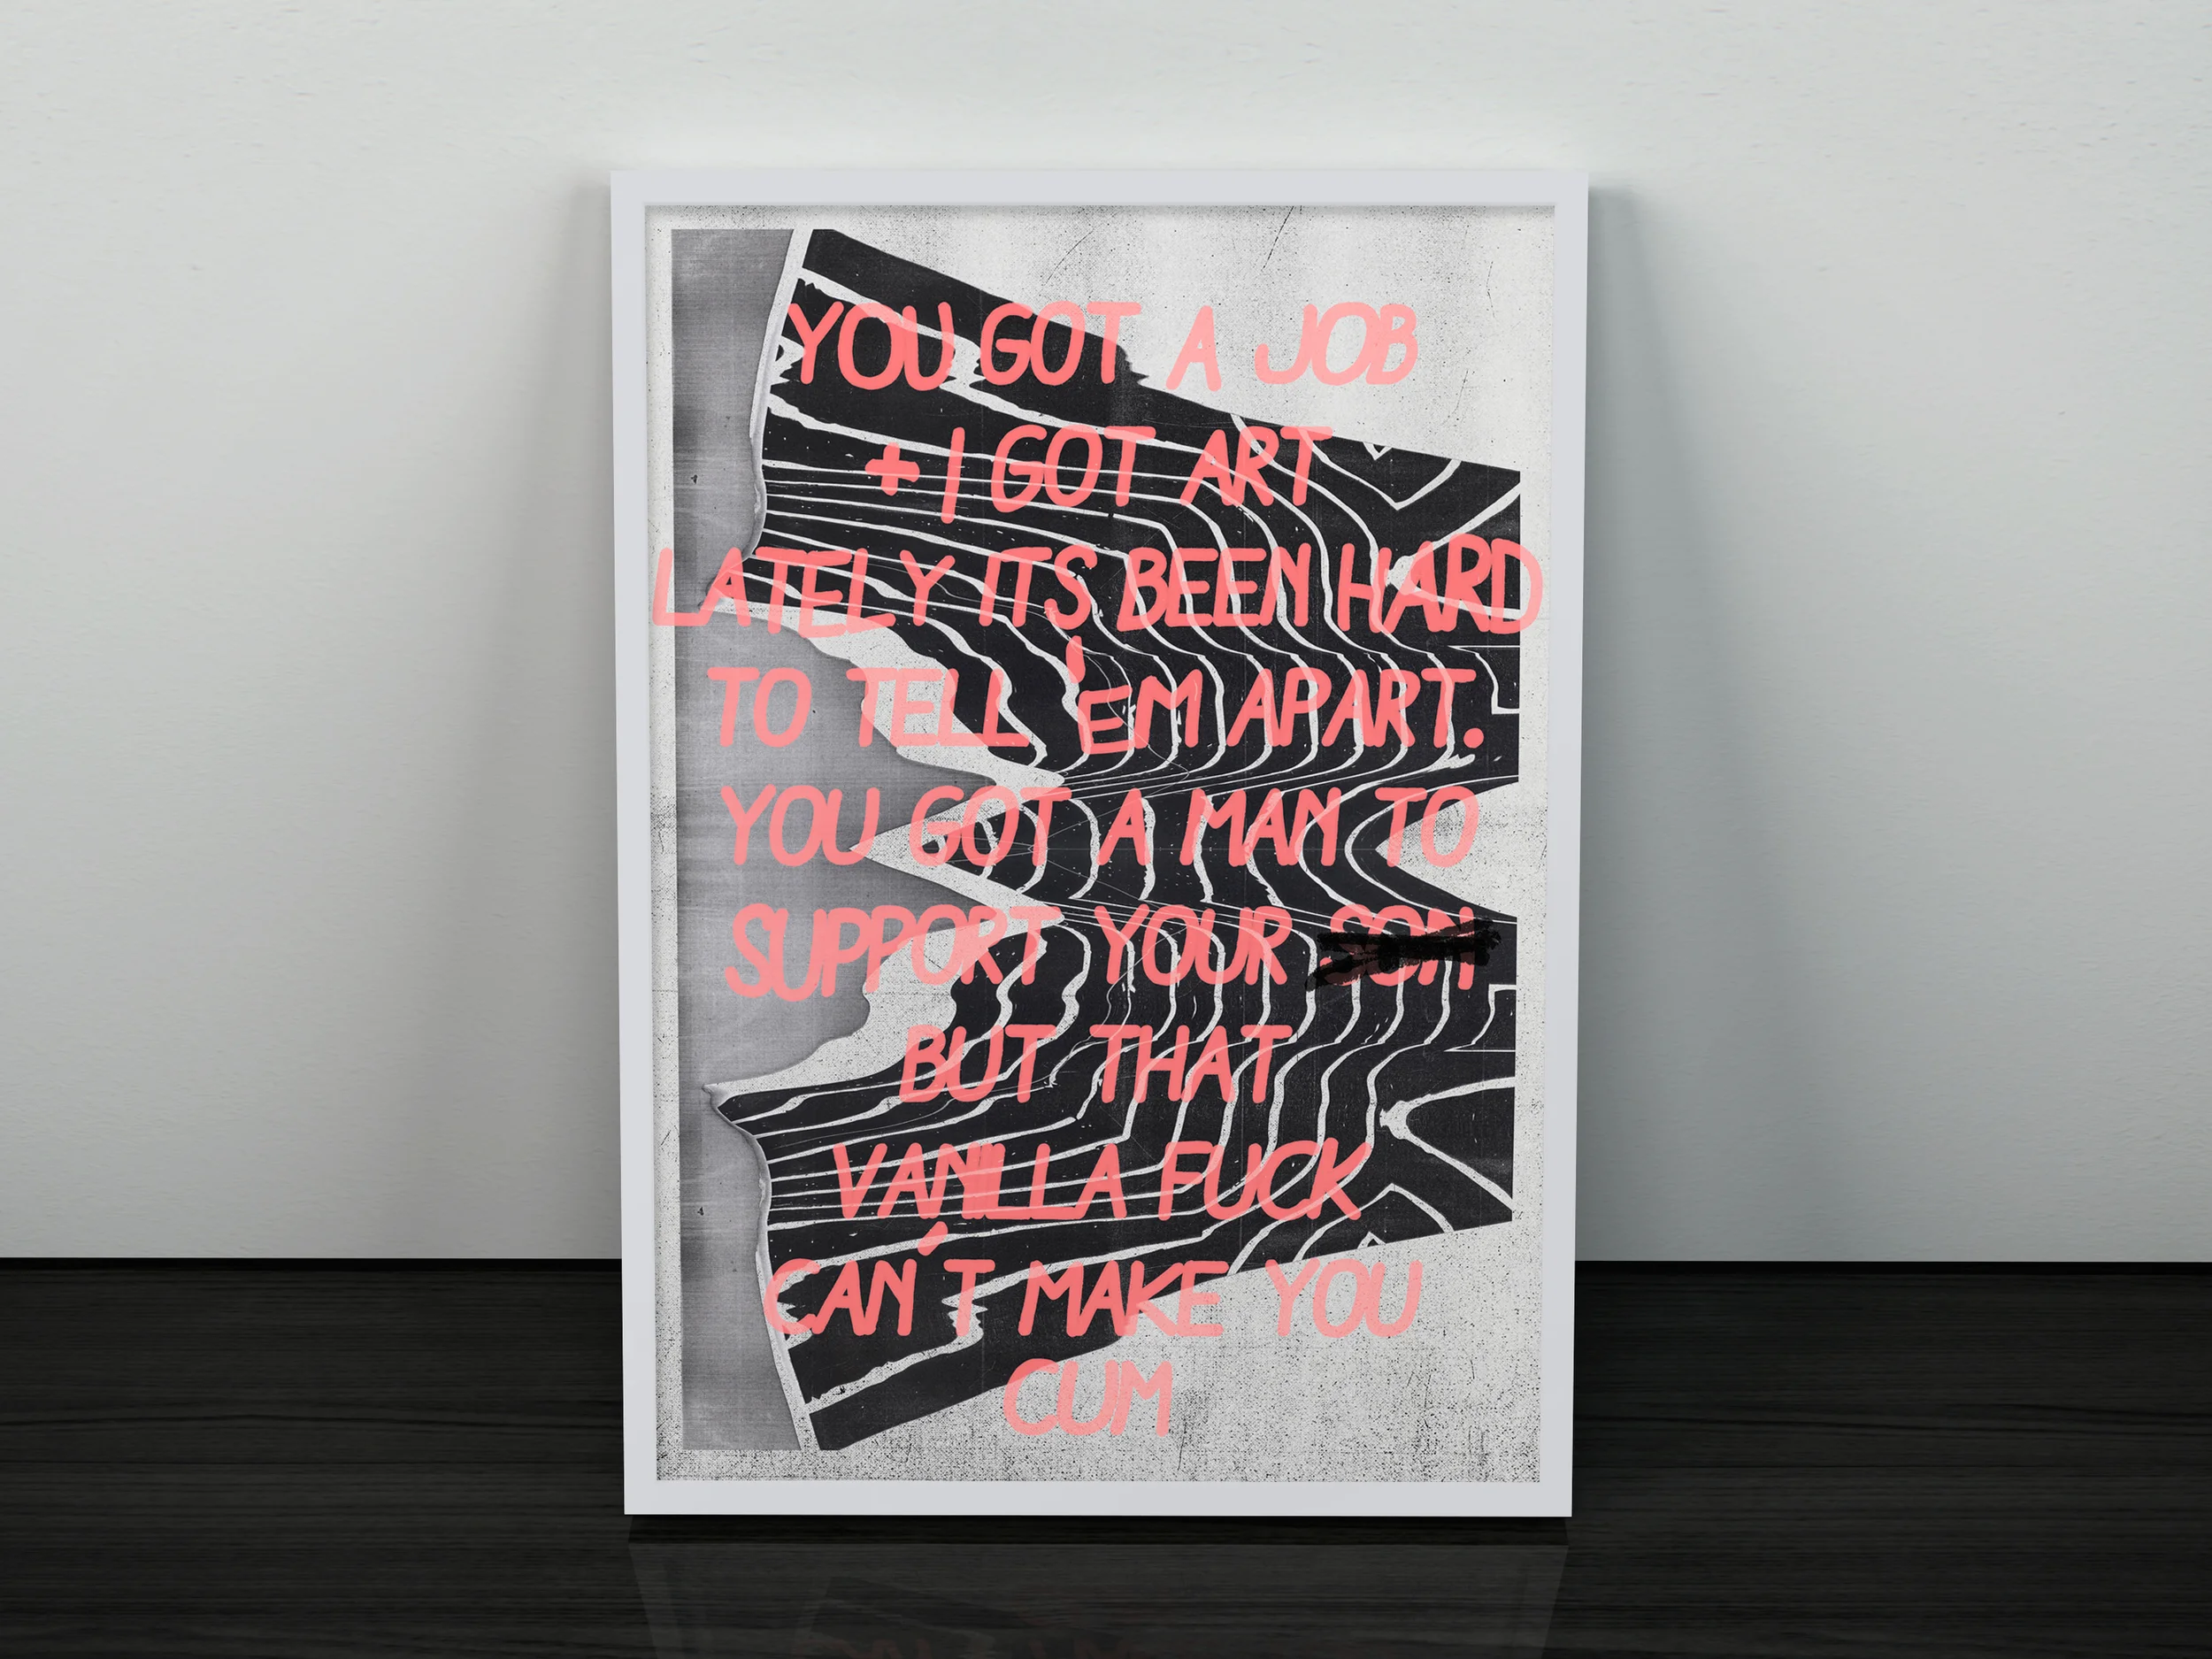 YOU GOT A JOB
+ I GOT ART
LATELY ITS BEEN HARD
TO TELL 'EM APART.
YOU GOT A MAN TO
SUPPORT YOUR SON
BUT THAT
VANILLA FUCK
CAN'T MAKE YOU
CUM